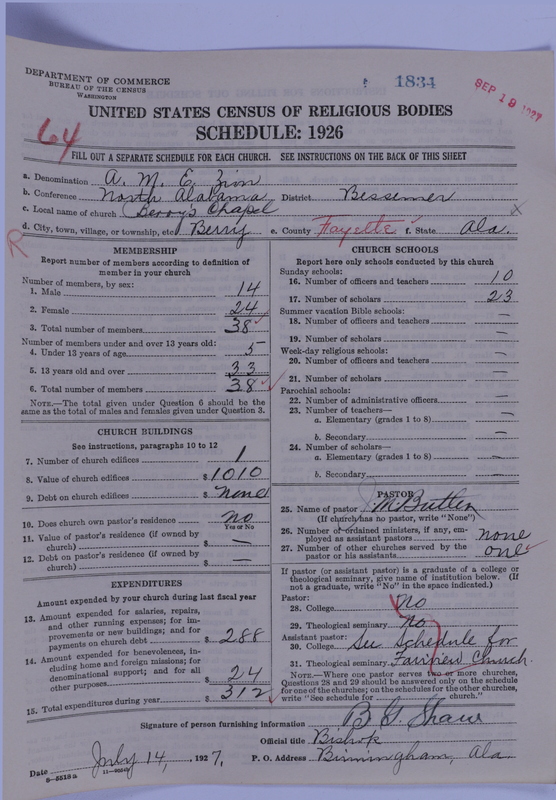 DEPARTMENT OF COMMERCE
BUREAU OF THE CENSUS
WASHINGTON
1834
SEP 19 1927
UNITED STATES CENSUS OF RELIGIOUS BODIES
SCHEDULE: 1926
64
FILL OUT A SEPARATE SCHEDULE FOR EACH CHURCH. SEE INSTRUCTIONS ON THE BACK OF THIS SHEET
a. Denomination A. M. E. Zion
b. Conference North Alabama District Bessemer
c. Local name of church Berry's Chapel
d. City, town, village, or township, etc Berry e. County Fayette f. State Ala.
R
MEMBERSHIP
Report number of members according to definition of member in your church
Number of members, by sex:
1. Male 14
2. Female 24
3. Total number of members 38
Number of members under and over 13 years old:
4. Under 13 years of age 5
5. 13 years old and over 33
6. Total number of members 38
NOTE.—The total given under Question 6 should be
same as the total of males and females given under Question 3.
CHURCH BUILDINGS
See instructions, paragraphs 10 to 12
7. Number of church edifices 1
8. Value of church edifices $ 1010
9. Debt on church edifices $ none
10. Does church own pastor's residence no
Yes or No
11. Value of pastor's residence (if owned by
church) $ —
12. Debt on pastor's residence (if owned by
church) $ —
EXPENDITURES
Amount expended by your church during last fiscal year
13. Amount expended for salaries, repairs,
and other running expenses; for im-
provements or new buildings; and for
payments on church debt $ 288
14. Amount expended for benevolences, in-
cluding home and foreign missions; for
denominational support; and for all
other purposes $ 24
15. Total expenditures during year $ 312
CHURCH SCHOOLS
Report here only schools conducted by this church
Sunday schools:
16. Number of officers and teachers 10
17. Number of scholars 23
Summer vacation Bible schools:
18. Number of officers and teachers —
19. Number of scholars —
Week-day religious schools:
20. Number of officers and teachers —
21. Number of scholars —
Parochial schools:
22. Number of administrative officers —
23. Number of teachers—
a. Elementary (grades 1 to 8) —
b. Secondary —
24. Number of scholars—
a. Elementary (grades 1 to 8) —
b. Secondary —
PASTOR
25. Name of pastor M Butler
(If church has no pastor, write "None")
26. Number of ordained ministers, if any, em-
ployed as assistant pastors none
27. Number of other churches served by the
pastor or his assistants one
If pastor (or assistant pastor) is a graduate of a college or
theological seminary, give name of institution below. (If
not a graduate, write "No" in the space indicated.)
Pastor:
28. College No
29. Theological seminary no
Assistant pastor:
30. College See Schedule for
31. Theological seminary Fairview Church.
NOTE.—Where one pastor serves two or more churches,
Questions 28 and 29 should be answered only on the schedule
for one of the churches; on the schedules for the other churches,
write "See schedule for church."
Signature of person furnishing information B. G. Shaw
Official title Bishop
Date July 14, 1927, P. O. Address Birmingham, Ala.
8-5518a